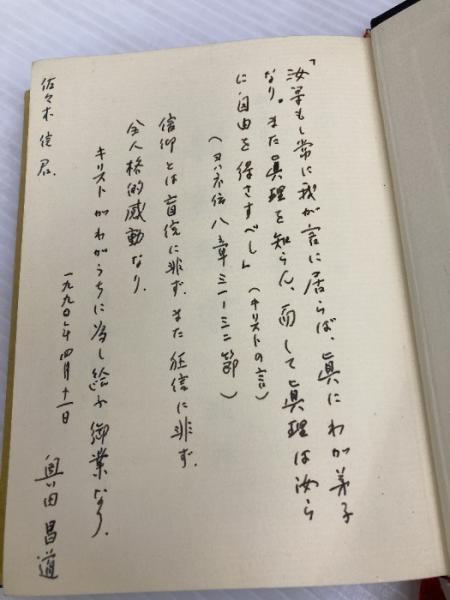 「汝等もし常に我が言に居らば、眞にわが弟子
なり。また眞理を知らん、而して眞理は汝ら
に自由を得さすべし」（キリストの言）
（ヨハネ伝八章三一ー三二節）
信仰とは盲信に非ず、また狂信に非ず、
全人格的感動なり。
キリストがわがうちに為し給ふ御業なり。
一九九〇年四月十一日
奥田昌道
佐々木信君